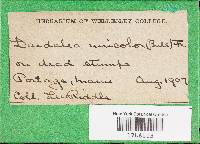 HERBARIUM OF WELLESLEY COLLEGE.
Daedalea unicolor (Bull) Fr.
on dead stumps
Portage, Maine Aug. 1907
Coll. L. W. Riddle